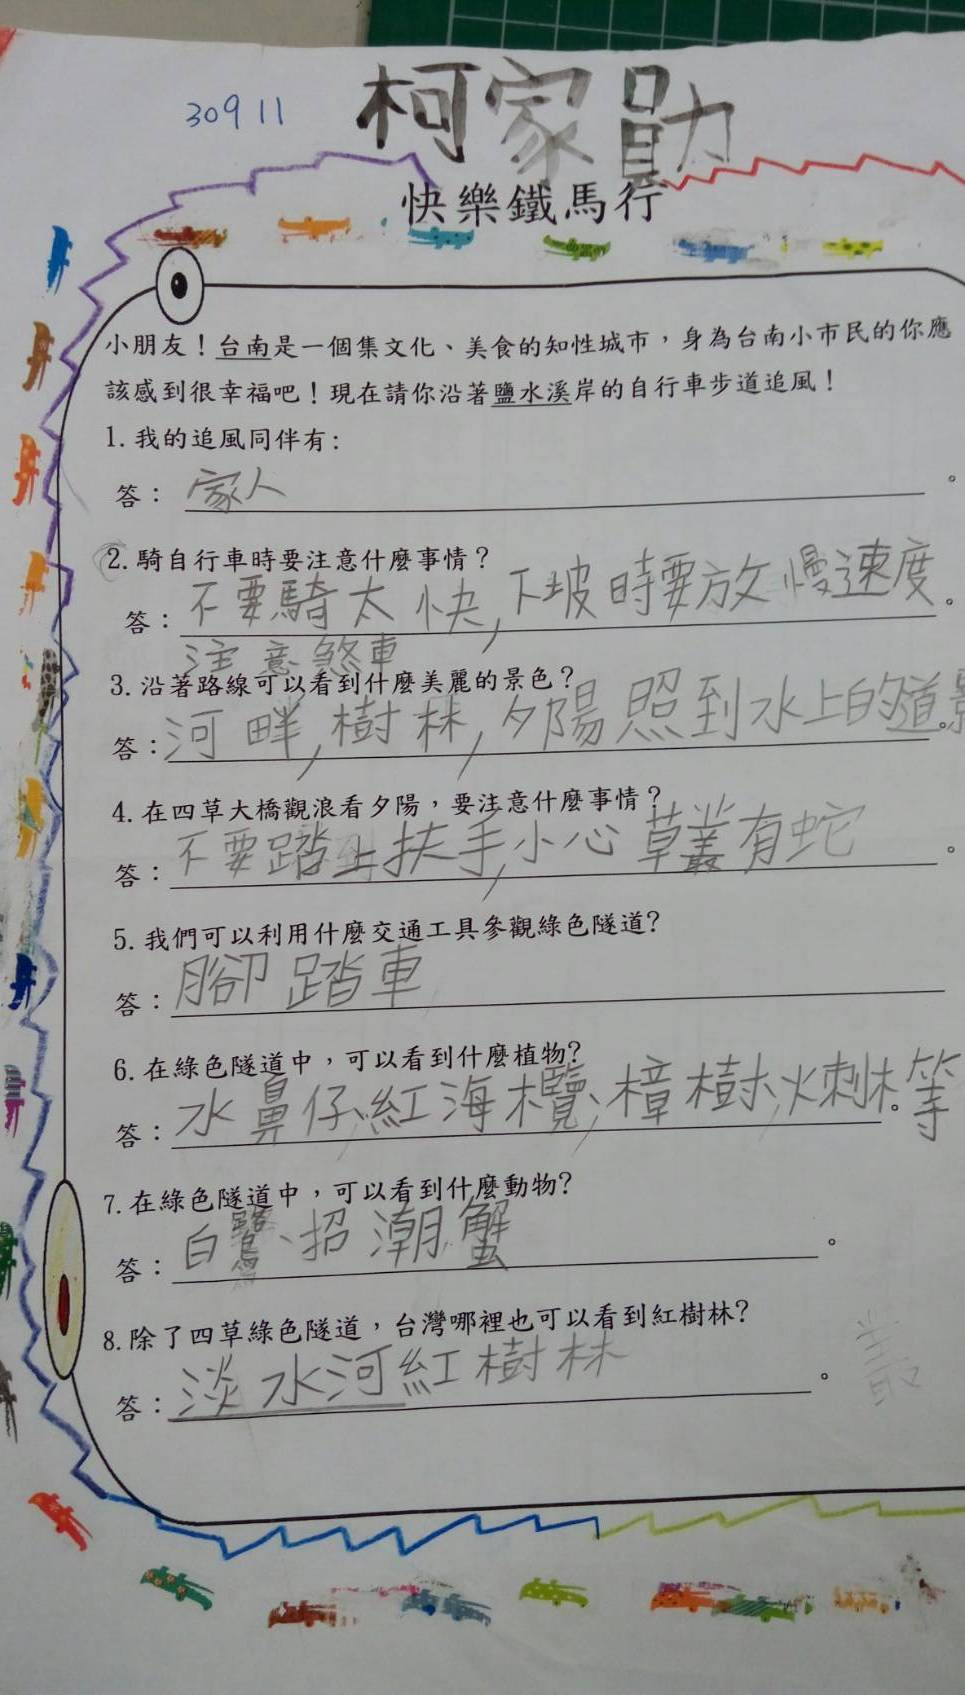 30911
柯家勛
快樂鐵馬行
小朋友！台南是一個集文化、美食的知性城市，身為台南小市民的你應
該感到很幸福吧！現在請你沿著鹽水溪岸的自行車步道追風！
1. 我的追風同伴有:
答： 家人 。
2. 騎自行車時要注意什麼事情？
答： 不要騎太快,下坡時要放慢速度。
注意煞車
3. 沿著路線可以看到什麼美麗的景色？
答：河畔,樹林,夕陽照到水上的道影。
4. 在四草大橋觀浪看夕陽，要注意什麼事情？
答：不要踏上扶手,小心草叢有蛇 。
5. 我們可以利用什麼交通工具參觀綠色隧道?
答：腳踏車
6. 在綠色隧道中，可以看到什麼植物?
答：水鼻仔、紅海欖、樟樹、火刺林等。
7. 在綠色隧道中，可以看到什麼動物?
答：白鷺、招潮蟹 。
8. 除了四草綠色隧道，台灣哪裡也可以看到紅樹林?
答：淡水河紅樹林 。
叢